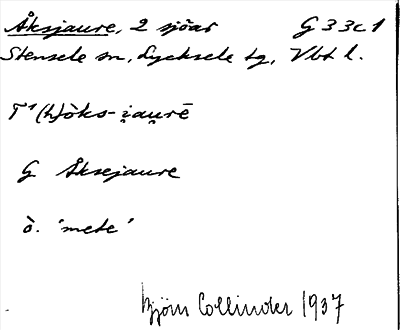 Åksjaure, 2 sjöar G 33c1
Stensele sn, Lycksele tg, Vbt l.
T¹ (h)òks-i̯au̯rē
G Åksejaure
ò. 'mete'
Björn Collinder 1937